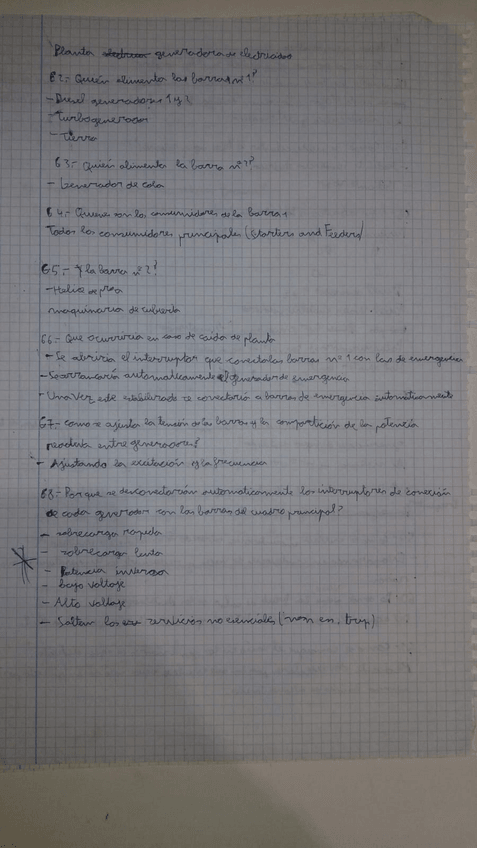 Planta generadora de electricidad
62.- Quién alimenta las barras nº 1?
- Diesel generadores 1 y 2
- Turbogenerador
- Tierra
63.- Quién alimenta la barra nº 2?
- Generador de cola
64.- Quienes son los consumidores de la barra 1
Todos los consumidores principales (Starters and Feeders)
65.- Y la barra nº 2?
- Helice de proa
maquinaria de cubierta
66.- Que ocurriria en caso de caida de planta
- Se abriria el interruptor que conecta las barras nº 1 con las de emergencia
- Se arrancaria automaticamente el generador de emergencia
- Una vez este estabilizado se conectaria a barras de emergencia automaticamente
67.- como se ajusta la tensión de las barras y la compartición de la potencia
reactiva entre generadores?
- Ajustando la excitación y la frecuencia
68.- Por que se desconectarian automaticamente los interruptores de conexión
de cada generador con las barras del cuadro principal?
- sobrecarga rapida
- sobrecarga lenta
- Potencia inversa
- bajo voltaje
- Alto voltaje
- Saltan los servicios no esenciales (non en. trip)